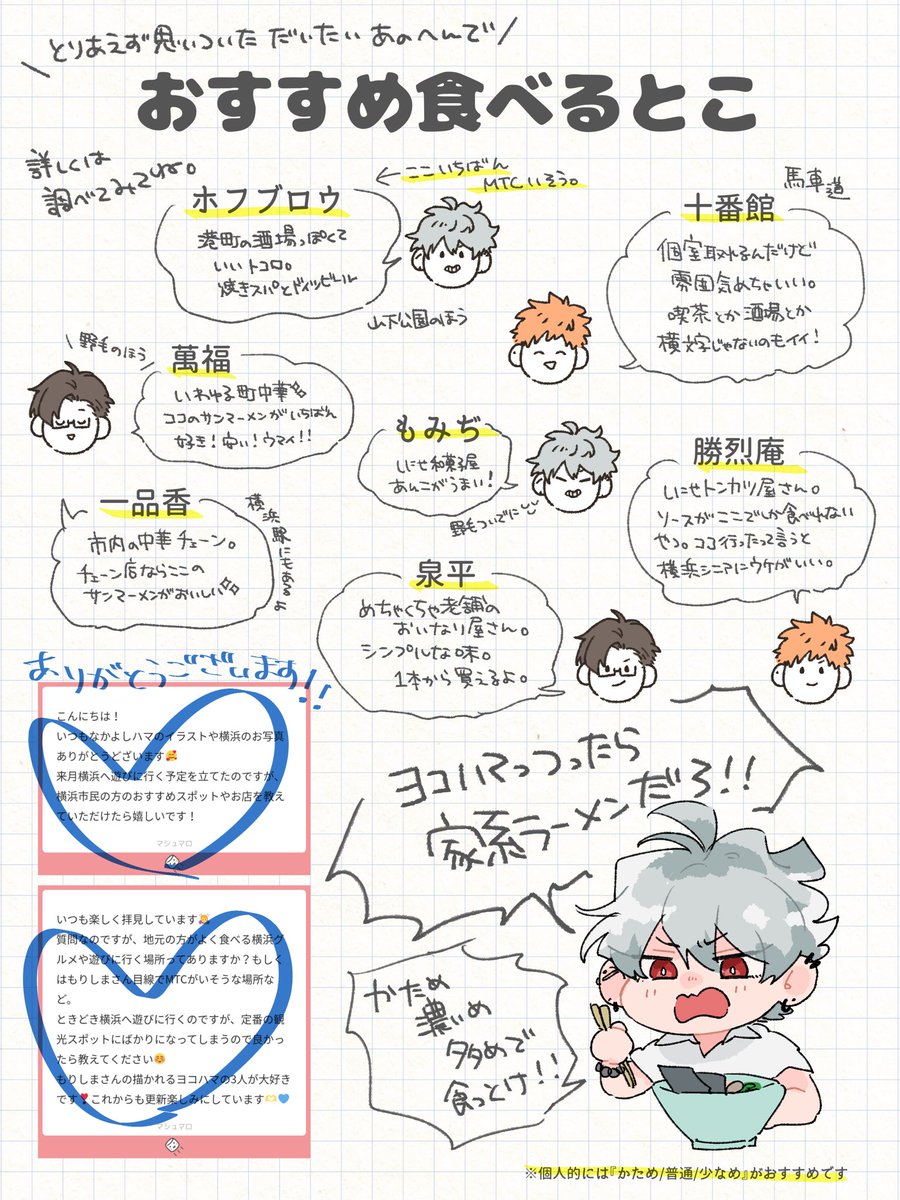 とりあえず思いついた だいたい あのへんで
おすすめ食べるとこ
詳しくは
調べてみてね。
ホフブロウ
←ここいちばん
MTCいそう。
港町の酒場っぽくて
いいトコロ。
焼きスパとドイツビール
山下公園のほう
馬車道
十番館
個室取れるんだけど
雰囲気めちゃいい。
喫茶とか酒場とか
横文字じゃないのもイイ!
野毛のほう
萬福
いわゆる町中華
ココのサンマーメンがいちばん
好き!安い!ウマイ!!
もみぢ
しにせ和菓子屋
あんこがうまい!
野毛ついでに
勝烈庵
しにせトンカツ屋さん。
ソースがここでしか食べれない
やつ。ココ行ったって言うと
横浜シニアにウケがいい。
一品香
市内の中華チェーン。
チェーン店ならここの
サンマーメンがおいしい
横浜駅にもあるよ
泉平
めちゃくちゃ老舗の
おいなり屋さん。
シンプルな味。
1本から買えるよ。
ありがとうございます!!
こんにちは!
いつもなかよしハマのイラストや横浜のお写真
ありがとうございます🥰
来月横浜へ遊びに行く予定を立てたのですが、
横浜市民の方のおすすめスポットやお店を教え
ていただけたら嬉しいです!
マシュマロ
いつも楽しく拝見しています
質問なのですが、地元の方がよく食べる横浜グ
ルメや遊びに行く場所ってありますか?もしく
はもりしまさん目線でMTCがいそうな場所な
ど。
ときどき横浜へ遊びに行くのですが、定番の観
光スポットにばかりになってしまうので良かっ
たら教えてください☺️
もりしまさんの描かれるヨコハマの3人が大好き
です❣️これからも更新楽しみにしています🫶💙
マシュマロ
ヨコハマっつったら
家系ラーメンだろ!!
かため
濃いめ
多めで
食っとけ!!
※個人的には『かため/普通/少なめ』がおすすめです